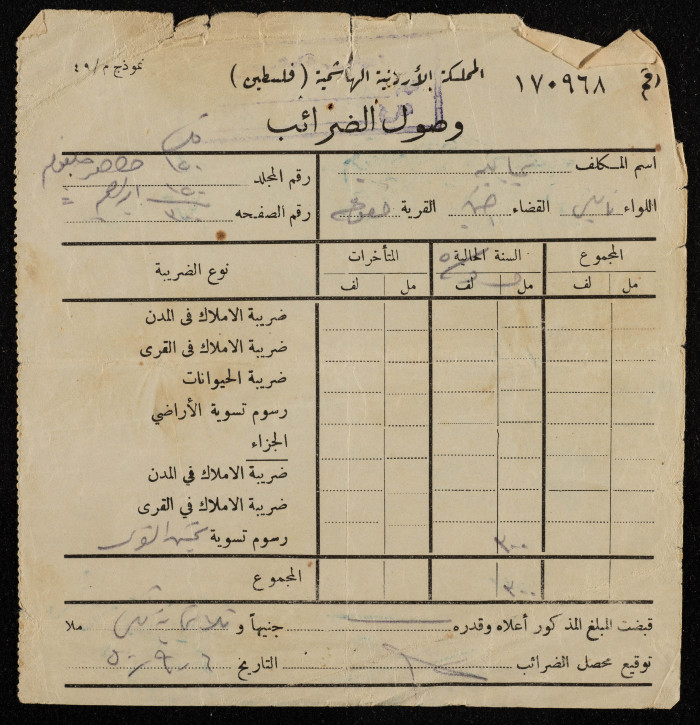 نموذج م/٤٩
المملكة الأردنية الهاشمية (فلسطين)
رقم ١٧٠٩٦٨
وصول الضرائب
اسم المكلف
رقم المجلد ١٥٠
١٥٠
اللواء نابلس القضاء جنين القرية
رقم الصفحه ٣٠٠
المجموع السنة الحالية المتأخرات نوع الضريبة
مل لف مل لف مل لف
ضريبة الاملاك فى المدن
ضريبة الاملاك فى القرى
ضريبة الحيوانات
رسوم تسوية الأراضي
الجزاء
ضريبة الاملاك في المدن
ضريبة الاملاك في القرى
رسوم تسوية تحسين القرى ٣٠٠
المجموع ٣٠٠
قبضت المبلغ المذكور أعلاه وقدره جنيهاً و ثلاثماية ملا
توقيع محصل الضرائب التاريخ ٦-٩-٥٠